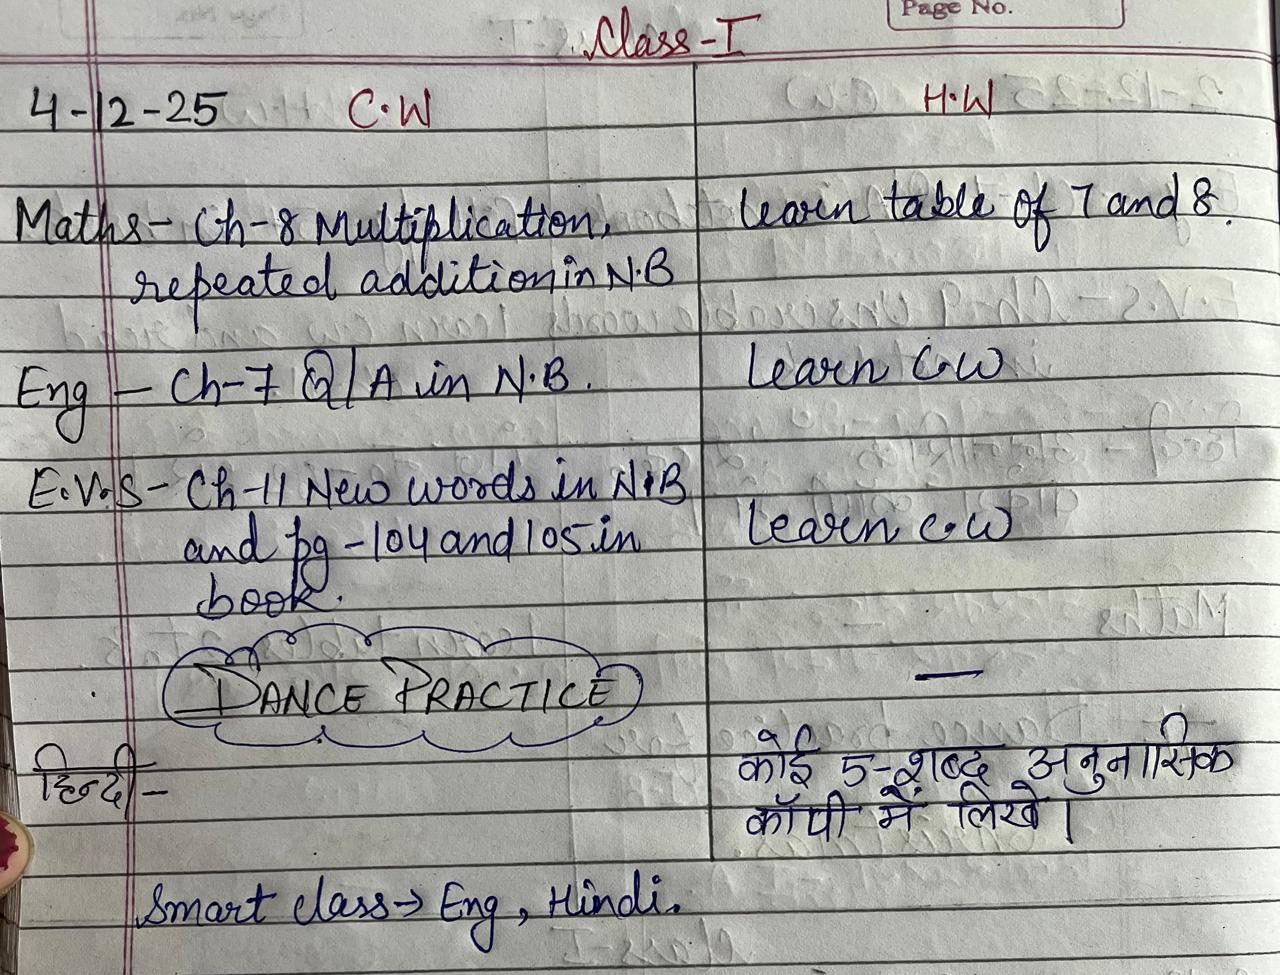 Page No.
Class-I
4-12-25 C.W H.W
Maths- Ch-8 Multiplication, learn table of 7 and 8.
repeated addition in N.B
Eng - Ch-7 Q/A in N.B. learn C.W
E.V.S- Ch-11 New words in N.B
and pg-104 and 105 in learn C.W
book.
DANCE PRACTICE —
हिन्दी- कोई 5-शब्द अनुनासिक
कॉपी में लिखे।
Smart class→ Eng, Hindi.